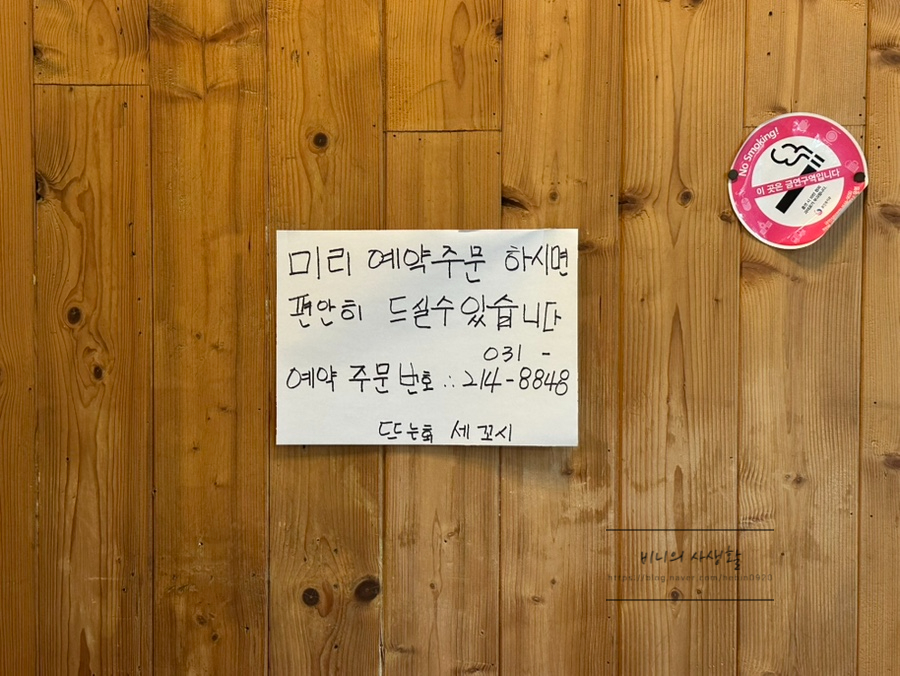 미리 예약주문 하시면
편안히 드실수있습니다
031 -
예약 주문번호 : 214-8848
뜨는회 세꼬시
No Smoking!
이 곳은 금연구역입니다
비니의 사생활